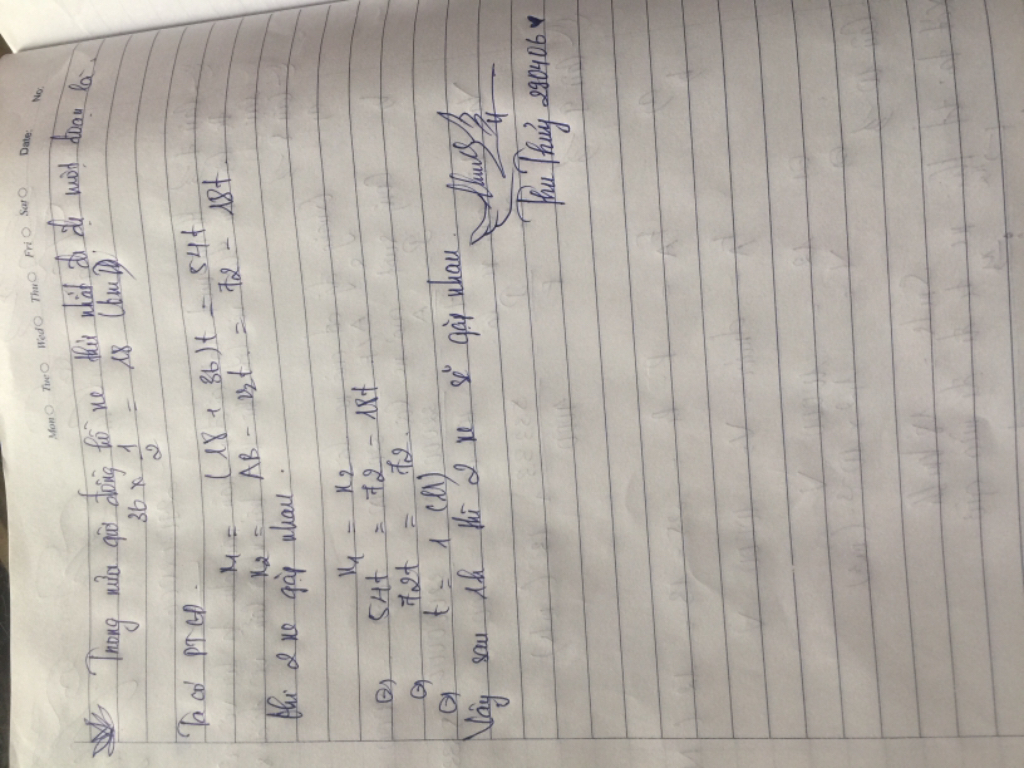 No.
Date:
Mon Tue Wed Thu Fri Sat
Trong nửa giờ đồng hồ xe thứ nhất đã đi một đoạn là:
36 x 1/2 = 18 (km)
Ta có PTCĐ
x1 = (18 + 36)t = 54t
x2 = AB - 18t = 72 - 18t
Khi 2 xe gặp nhau.
x1 = x2
⇔ 54t = 72 - 18t
⇔ 72t = 72
⇔ t = 1 (h)
Vậy sau 1h thì 2 xe sẽ gặp nhau.
Thu Thủy 290406